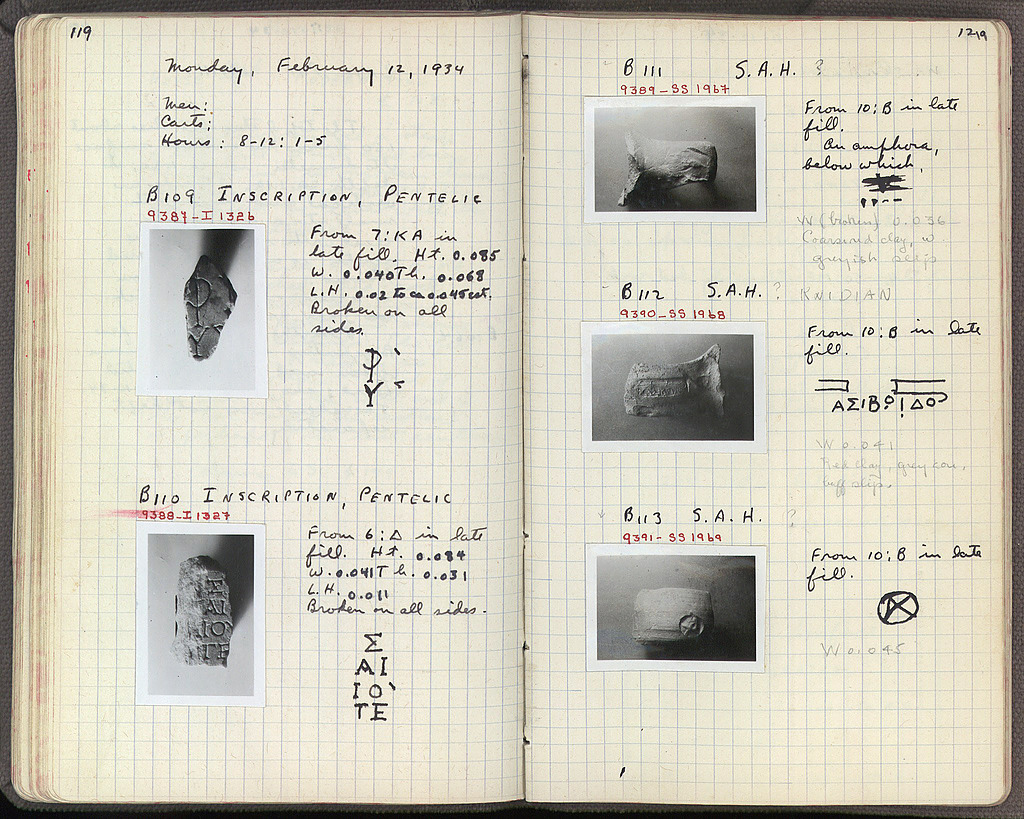 119
Monday, February 12, 1934
Men:
Carts:
Hours: 8-12: 1-5
B109 INSCRIPTION, PENTELIC
9387-I 1326
From 7:KA in
late fill. Ht. 0.085
W. 0.040 Th. 0.068
L.H. 0.02 to ca 0.045 est.
Broken on all
sides.
Ρ
Υ
B110 INSCRIPTION, PENTELIC
9388-I 1327
From 6:Δ in late
fill. Ht. 0.084
W. 0.041 Th. 0.031
L.H. 0.011
Broken on all sides.
Σ
ΑΙ
ΙΟ
ΤΕ
B111 S.A.H. ?
9389-SS 1967
From 10:B in late
fill.
On amphora,
below which,
W (broken) 0.036
Coarse red clay, w.
greyish slip
B112 S.A.H. ? KNIDIAN
9390-SS 1968
From 10:B in late
fill.
ΑΣΙΒΟ ΙΔΟ
W 0.041
Red clay, grey core,
buff slip.
B113 S.A.H. ?
9391-SS 1969
From 10:B in late
fill.
W 0.045